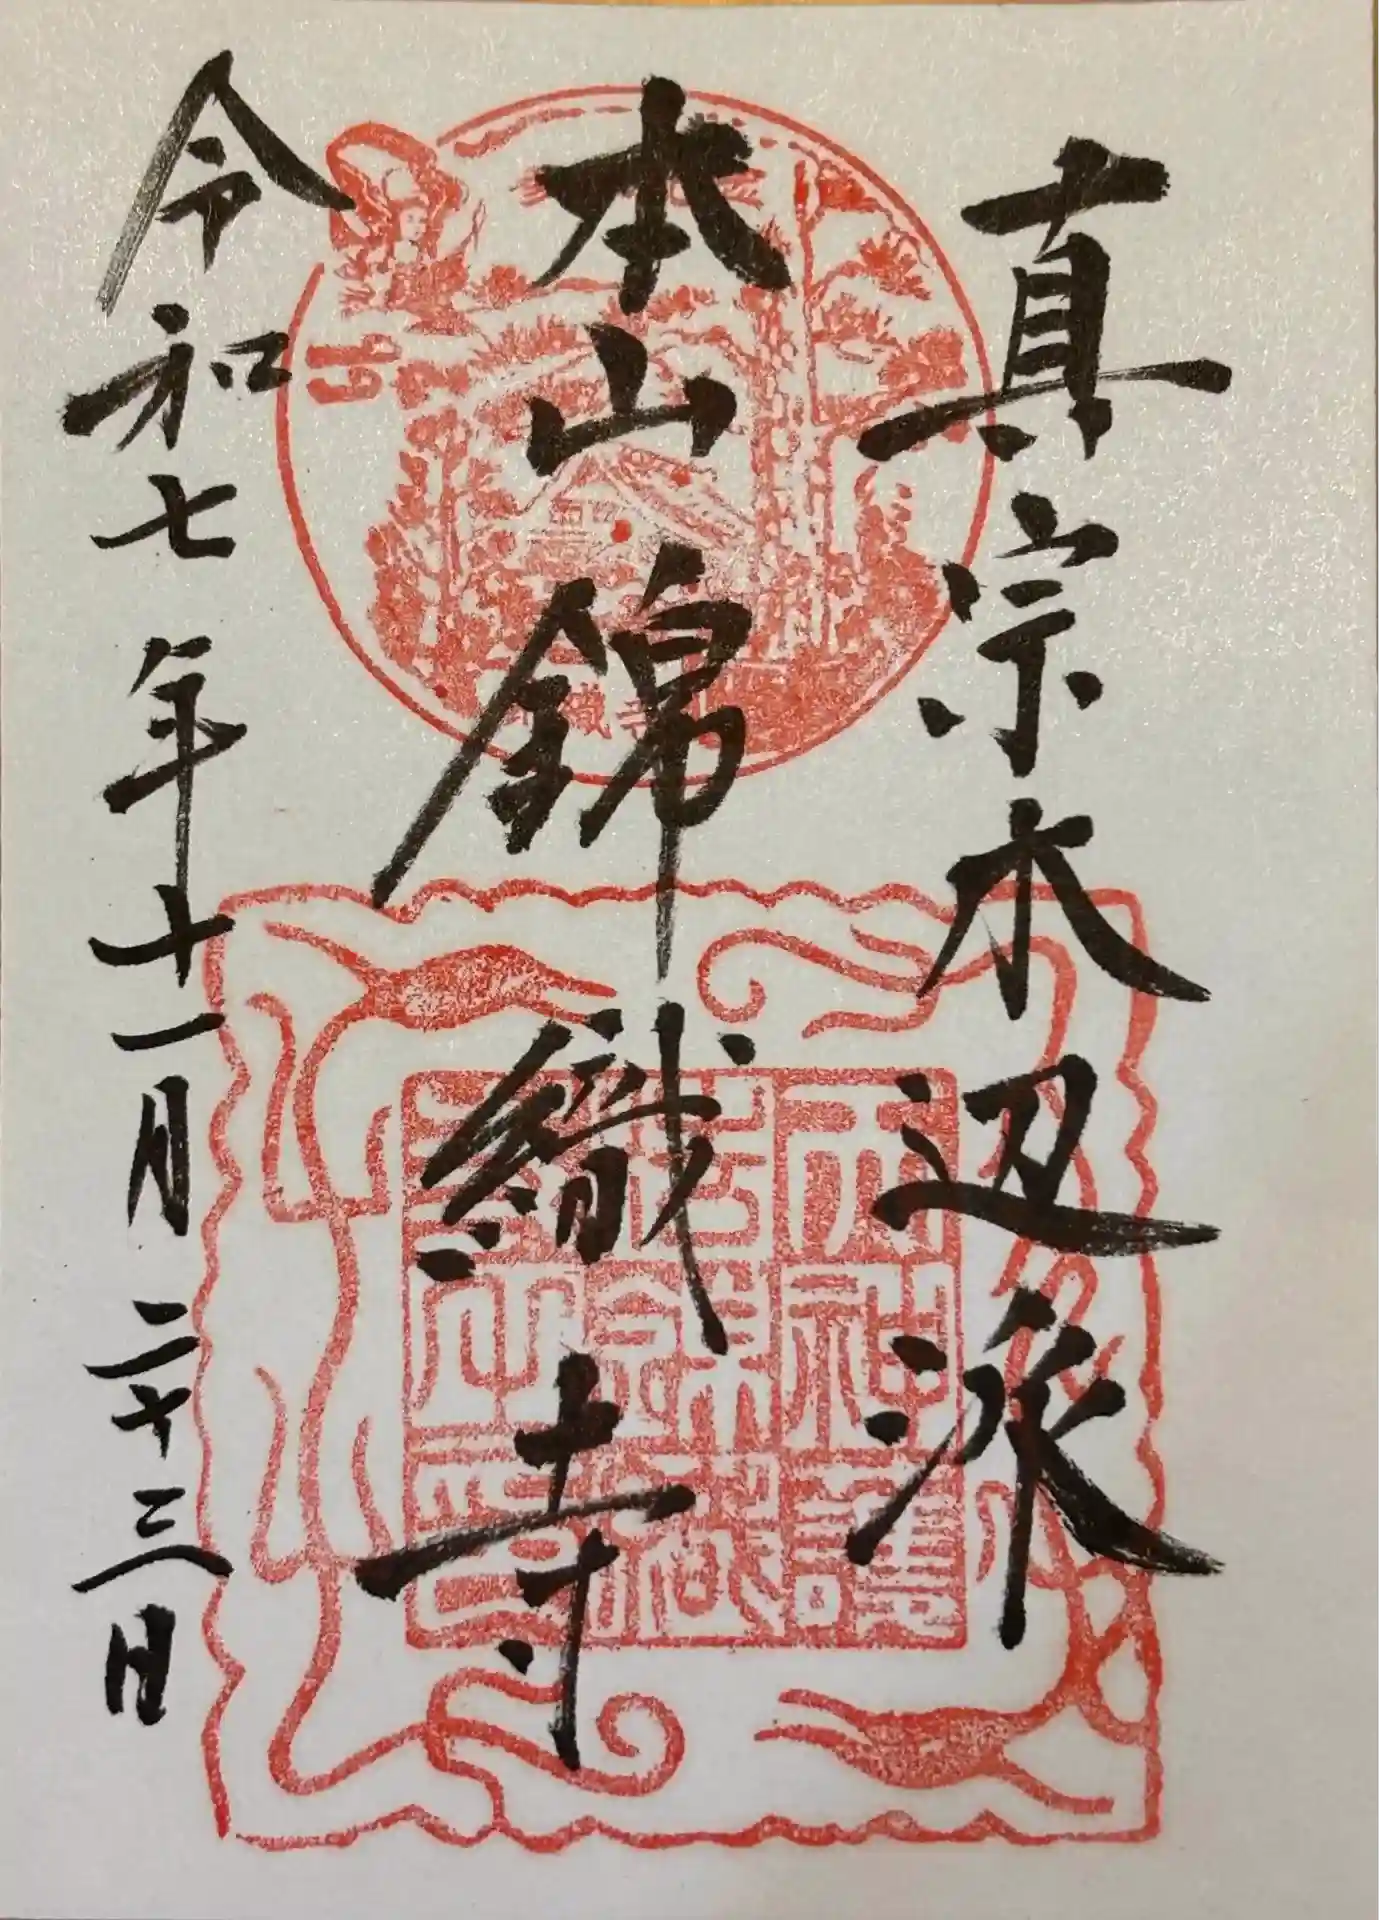 真宗木辺派
本山錦織寺
令和七年十一月二十三日
織寺
天神護